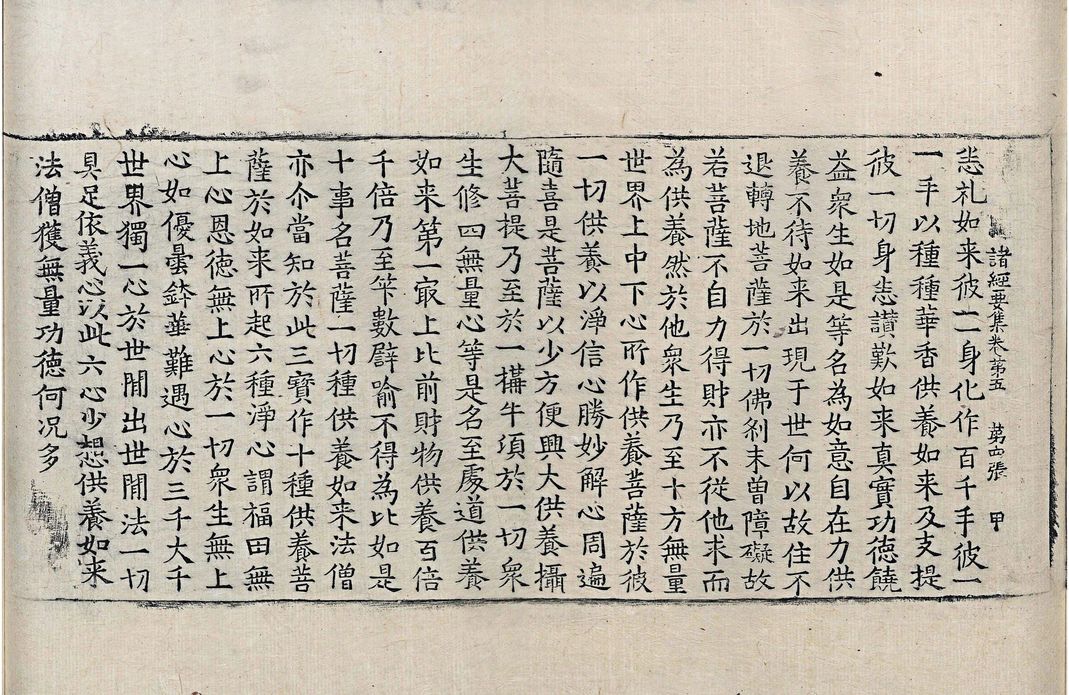 諸經要集卷第五　第六張　甲
悉礼如来彼一一身化作百千手彼一
一手以種種華香供養如来及支提
彼一切身悉讃歎如来真實功德饒
益衆生如是等名為如意自在力供
養不待如来出現于世何以故住不
退轉地菩薩於一切佛刹未曽障礙故
若菩薩不自力得財亦不從他求而
為供養然於他衆生乃至十方無量
世界上中下心所作供養菩薩於彼
一切供養以淨信心勝妙解心周遍
隨喜是菩薩以少方便興大供養攝
大菩提乃至於一搆牛項於一切衆
生修四無量心等是名至處道供養
如来第一㝡上比前財物供養百倍
千倍乃至筭數譬喻不得為比如是
十事名菩薩一切種供養如来法僧
亦尒當知於此三寳作十種供養菩
薩於如来所起六種淨心謂福田無
上心恩德無上心於一切衆生無上
心如優曇鉢華難遇心於三千大千
世界獨一心於世閒出世閒法一切
具足依義心以此六心少想供養如来
法僧獲無量功德何况多